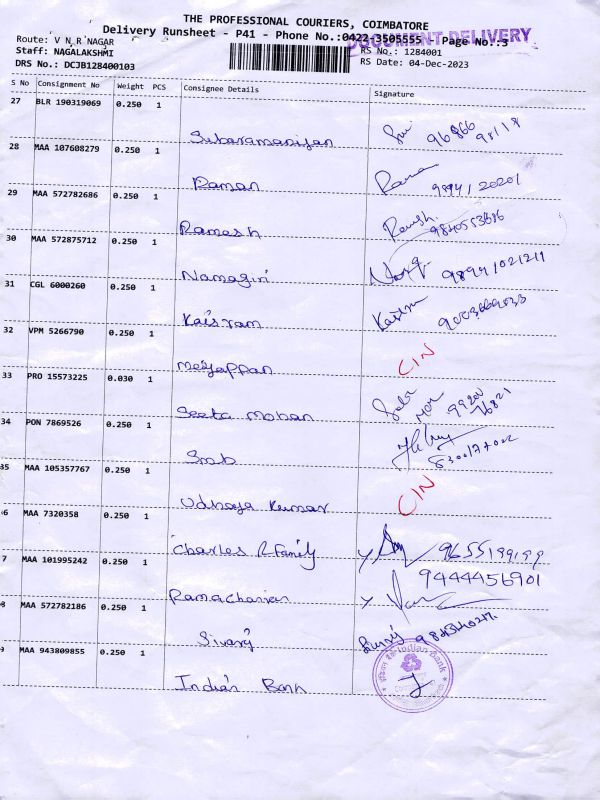 THE PROFESSIONAL COURIERS, COIMBATORE
Delivery Runsheet - P41 - Phone No.:0422-3505555 Page No.:3
DOCUMENT DELIVERY
Route: V N R NAGAR RS No.: 1284001
Staff: NAGALAKSHMI RS Date: 04-Dec-2023
DRS No.: DCJB128400103
S No Consignment No Weight PCS Consignee Details Signature
27 BLR 190319069 0.250 1
Subaramaniyan
28 MAA 107608279 0.250 1
Raman 9894120201
29 MAA 572782686 0.250 1
Ramesh Ramesh
30 MAA 572875712 0.250 1
Namagiri 98941021211
31 CGL 6000260 0.250 1
Kaisram
32 VPM 5266790 0.250 1
Meyappan CIN
33 PRO 15573225 0.030 1
Seeta Mohan
34 PON 7869526 0.250 1
35 MAA 105357767 0.250 1
Udhaya Kumar CIN
36 MAA 7320358 0.250 1
Charles R Family 9655199199
7 MAA 101995242 0.250 1
9444456901
Ramacharian
8 MAA 572782186 0.250 1
Sivary
9 MAA 943809855 0.250 1
Indian Bank
Indian Bank